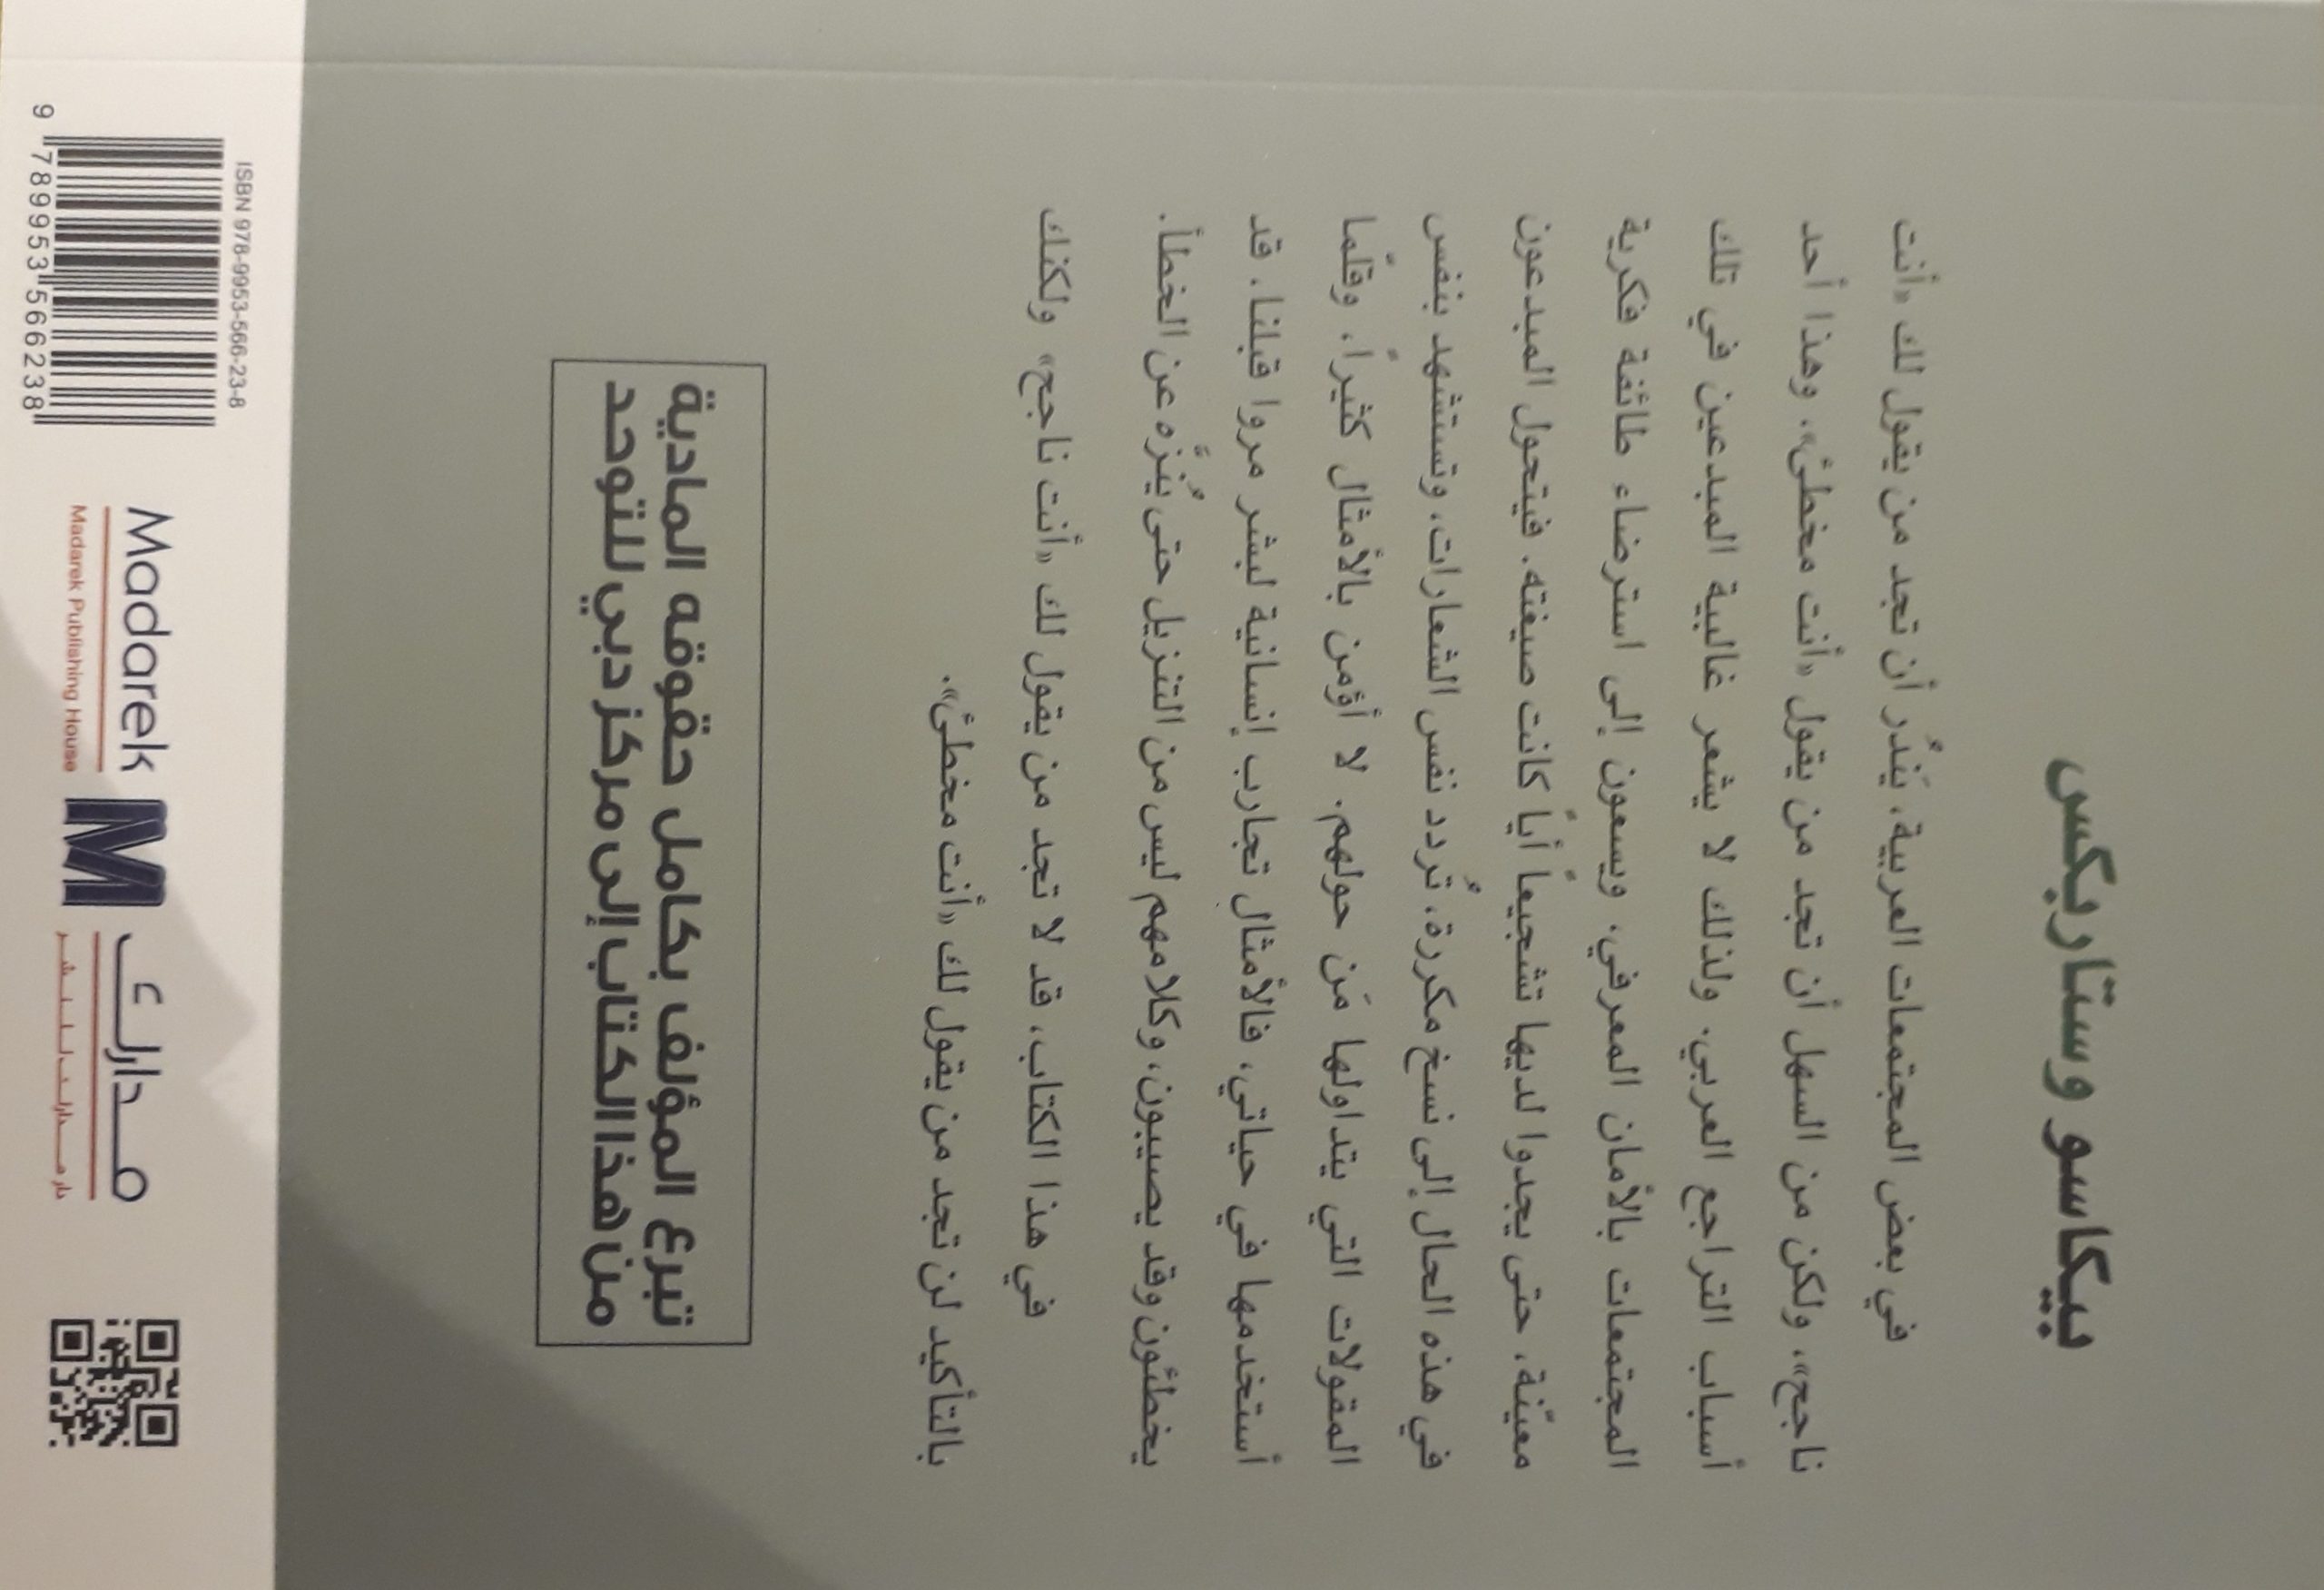 بيكاسو وستاربكس
في بعض المجتمعات العربية، يَندُر أن تجد من يقول لك «أنت
ناجح»، ولكن من السهل أن تجد من يقول «أنت مخطئ»، وهذا أحد
أسباب التراجع العربي. ولذلك لا يشعر غالبية المبدعين في تلك
المجتمعات بالأمان المعرفي. ويسعون إلى استرضاء طائفة فكرية
معيّنة، حتى يجدوا لديها تشجيعاً أياً كانت صيغته. فيتحول المبدعون
في هذه الحال إلى نسخ مكررة، تُردد نفس الشعارات، وتستشهد بنفس
المقولات التي يتداولها مَن حولهم. لا أؤمن بالأمثال كثيراً، وقلّما
أستخدمها في حياتي، فالأمثال تجارب إنسانية لبشر مروا قبلنا. قد
يخطئون وقد يصيبون، وكلامهم ليس من التنزيل حتى يُنزَّه عن الخطأ.
في هذا الكتاب، قد لا تجد من يقول لك «أنت ناجح» ولكنك
بالتأكيد لن تجد من يقول لك «أنت مخطئ».
تبرع المؤلف بكامل حقوقه المادية
من هذا الكتاب إلى مركز دبي للتوحد
ISBN 978-9953-566-23-8
9 789953 566238
Madarek
Madarek Publishing House
M
مدارك
دار مدارك للنشر